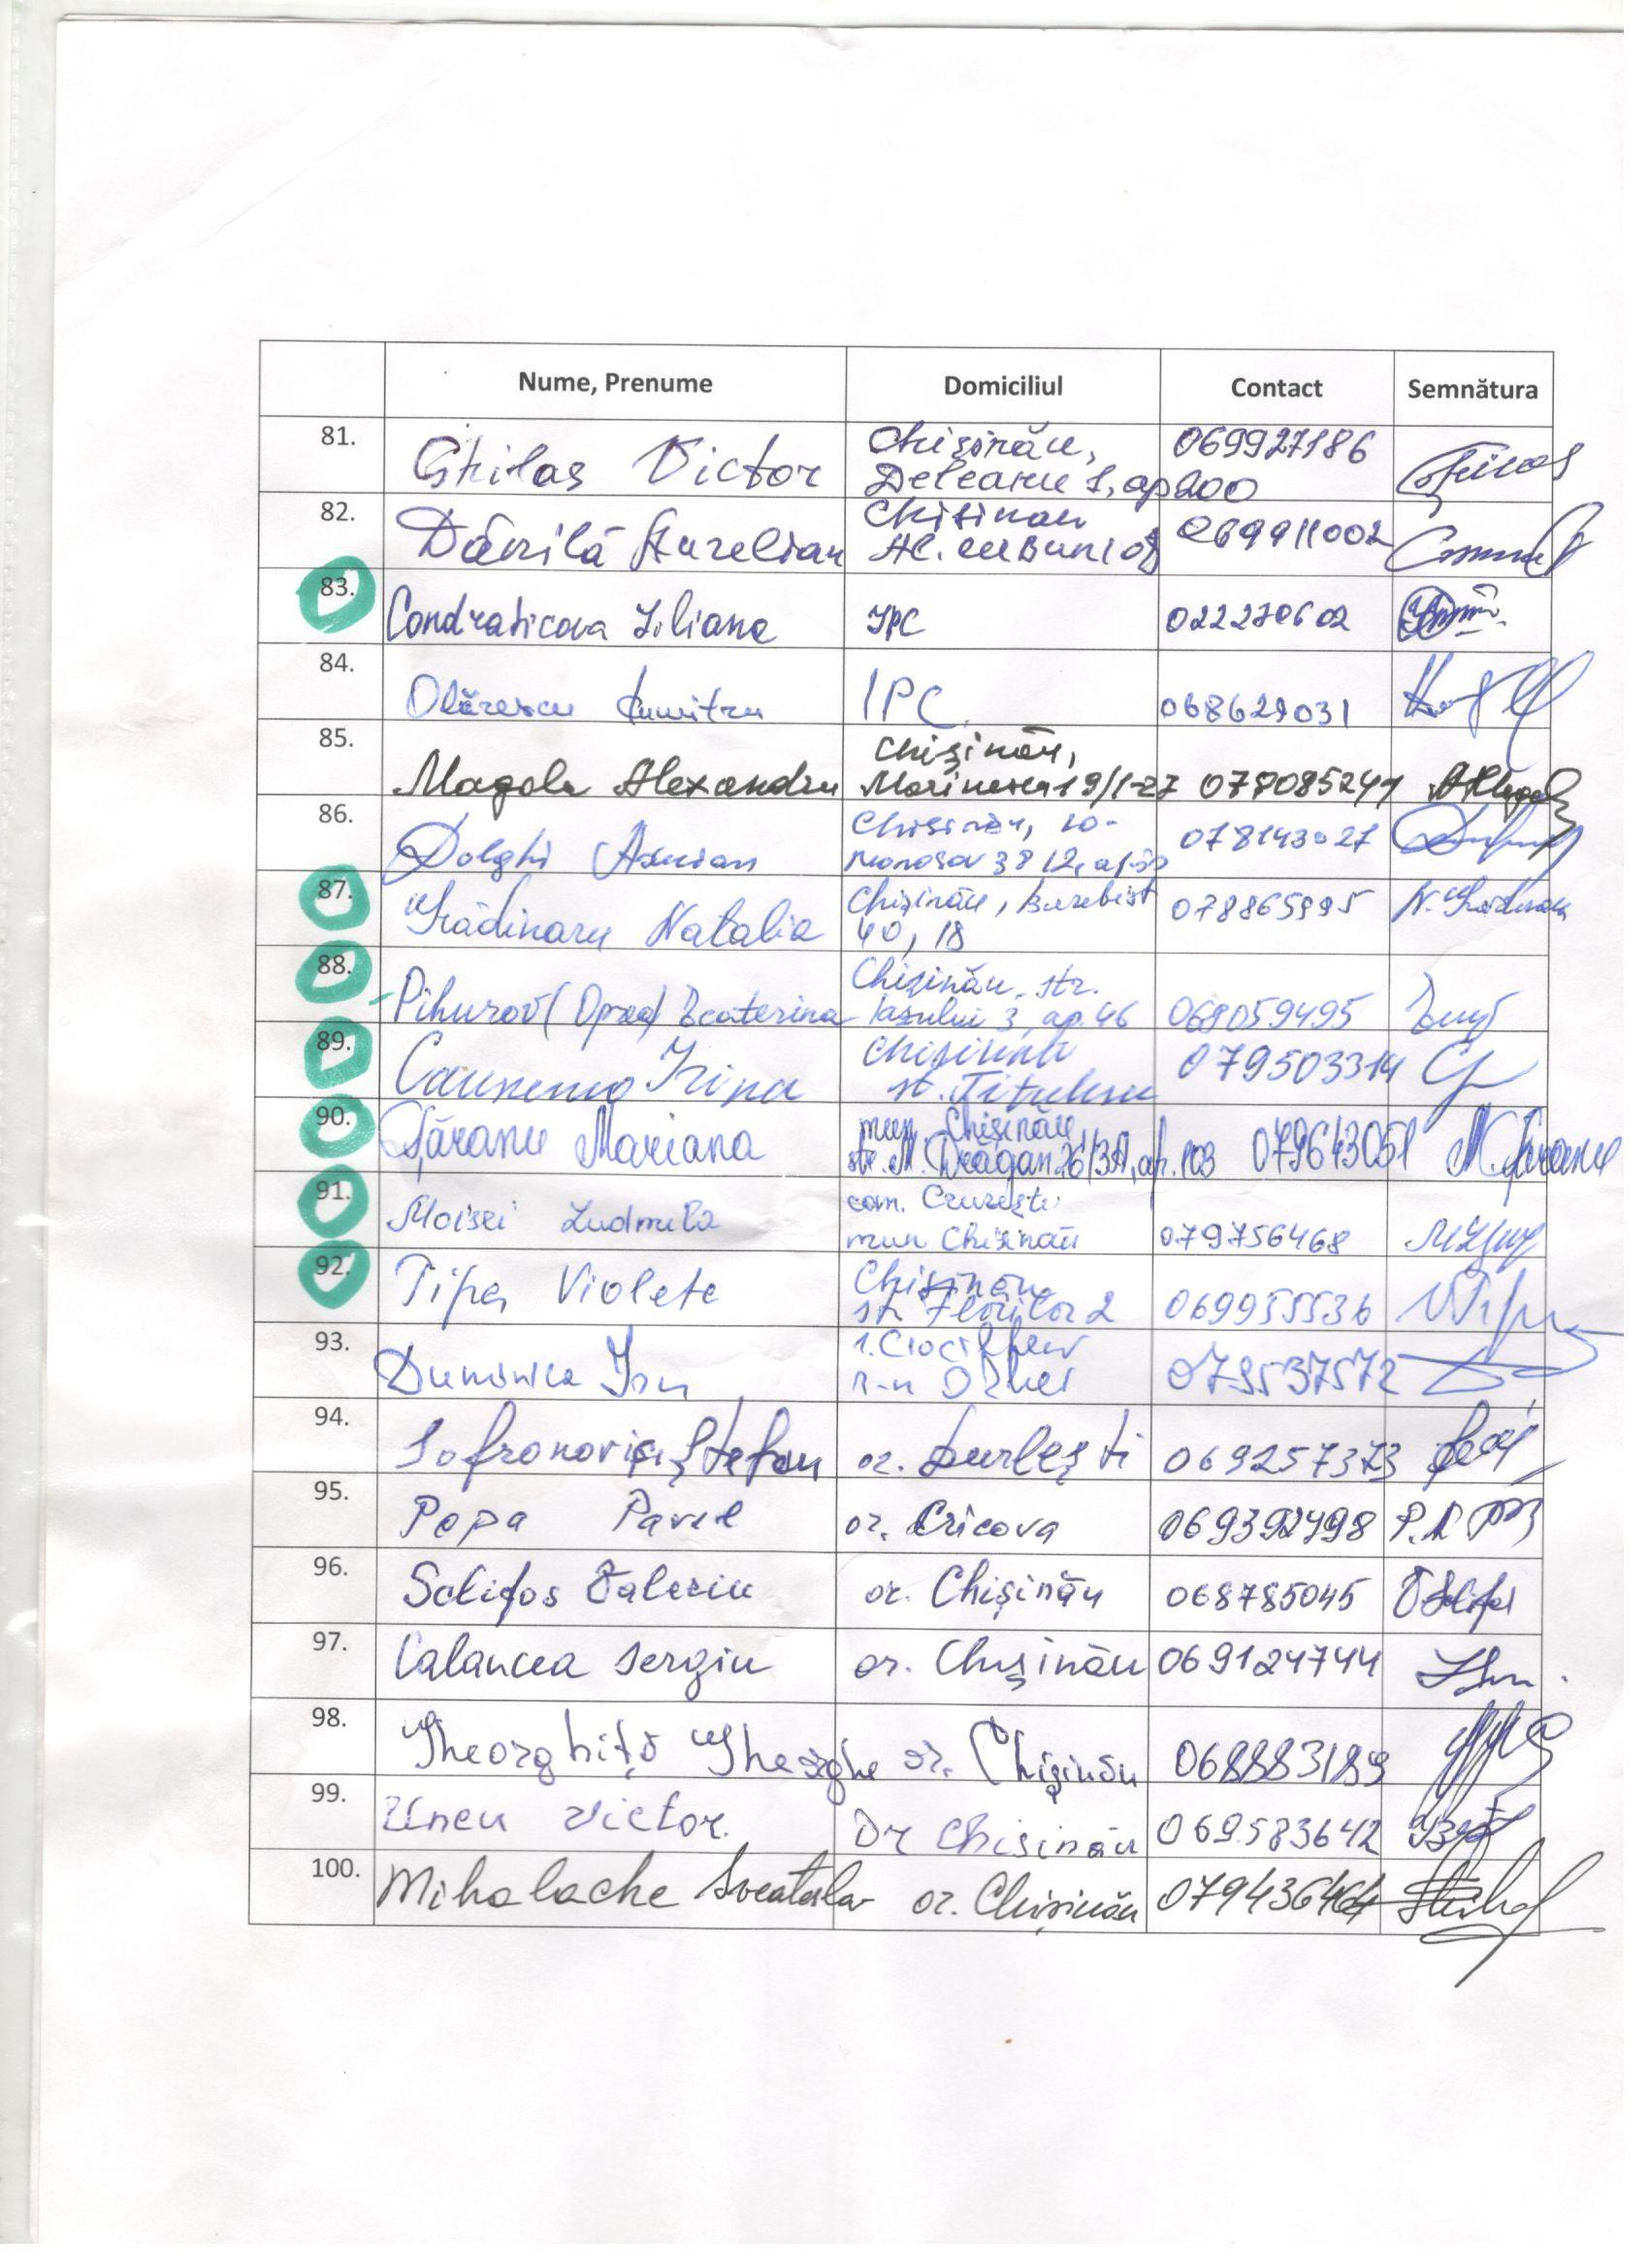 Nume, Prenume Domiciliul Contact Semnătura
81. Ghilaș Victor Chișinău, Deleanu 1, ap 200 069927186
82. Dănilă Aurelian Chișinău 069911002
83. Condraticova Liliana IPC 022270602
84. Olărescu Dumitru IPC 068629031
85. Magola Alexandru Chișinău, Marinescu 19/1-27 079085241
86. Dolghi Adrian Chișinău, Lo-
monosov 078143027
87. Grădinaru Natalia Chișinău, Burebist 40, 18 078865995 N. Grădinaru
88. Pihurov (Oprea) Ecaterina Chișinău, str. Iașului 3, ap. 46 068059495
89. Irina Chișinău st. Titulescu 079503314
90. Țăranu Mariana mun. Chișinău, str. M. Drăgan 26/3A, ap. 103 079643051 M. Țăranu
91. Moisei Ludmila com. Cruzești mun Chișinău 079756468
92. Țipa Violeta Chișinău str Florilor 2 069955536
93. Duminica Ion r-n Orhei 079537572
94. Sofronovici Ștefan or. Durlești 069257373
95. Popa Pavel or. Cricova 069392498
96. Sclifos Valeriu or. Chișinău 068785045
97. Calancea Sergiu or. Chișinău 069124744
98. Gheorghiță Gheorghe or. Chișinău 068883189
99. Uncu Victor. Or Chișinău 069583642
100. Mihalache Sveatoslav or. Chișinău 079436464